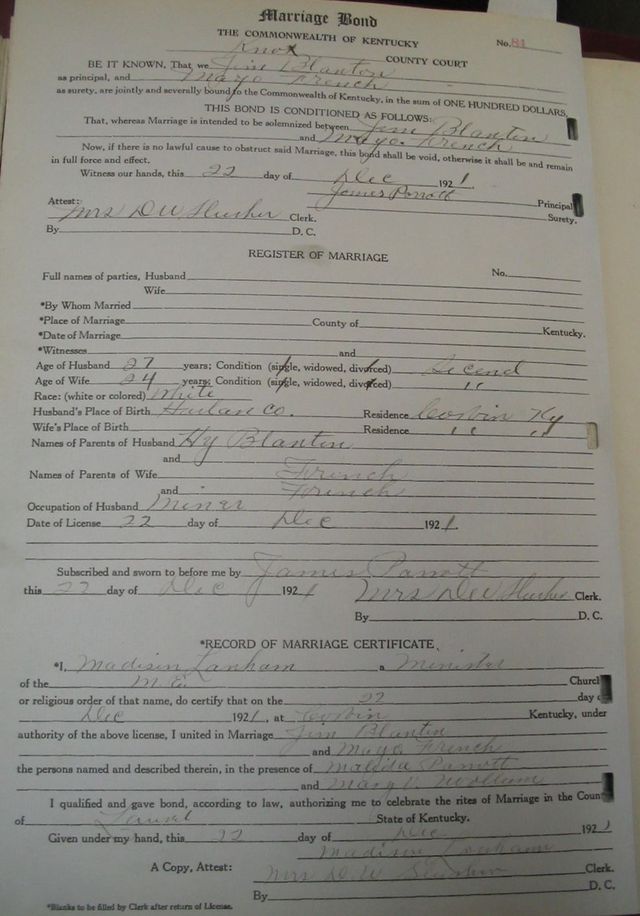 Marriage Bond
THE COMMONWEALTH OF KENTUCKY
No. 81
Knox COUNTY COURT
BE IT KNOWN, That we Jim Blanton
as principal, and Mayo French
as surety, are jointly and severally bound to the Commonwealth of Kentucky, in the sum of ONE HUNDRED DOLLARS,
THIS BOND IS CONDITIONED AS FOLLOWS:
That, whereas Marriage is intended to be solemnized between Jim Blanton
and Mayo French
Now, if there is no lawful cause to obstruct said Marriage, this bond shall be void, otherwise it shall be and remain
in full force and effect.
Witness our hands, this 22 day of Dec 1921.
James Parrott Principal
Attest: Surety.
Mrs D W Clerk.
By D. C.
REGISTER OF MARRIAGE
Full names of parties, Husband No.
Wife
*By Whom Married
*Place of Marriage County of Kentucky.
*Date of Marriage
*Witnesses and
Age of Husband 27 years; Condition (single, widowed, divorced) Second
Age of Wife 24 years; Condition (single, widowed, divorced) " "
Race: (white or colored) White
Husband's Place of Birth Harlan Co. Residence Corbin Ky
Wife's Place of Birth Residence " " " "
Names of Parents of Husband Hy Blanton
and
Names of Parents of Wife French
and French
Occupation of Husband Miner
Date of License 22 day of Dec 1921.
Subscribed and sworn to before me by James Parrott
this 22 day of Dec 1921 Mrs D W Clerk.
By D. C.
*RECORD OF MARRIAGE CERTIFICATE
*I, Madison Lanham a Minister
of the M. E. Churc
or religious order of that name, do certify that on the 22 day
Dec 1921, at Corbin Kentucky, under
authority of the above license, I united in Marriage Jim Blanton
and Mayo French
the persons named and described therein, in the presence of Malida Parrott
and Mary
I qualified and gave bond, according to law, authorizing me to celebrate the rites of Marriage in the Coun
of Laurel State of Kentucky.
Given under my hand, this 22 day of Dec 1921
Madison Lanham
A Copy, Attest: Mrs D. W Clerk.
By D. C.
*Blanks to be filled by Clerk after return of License.